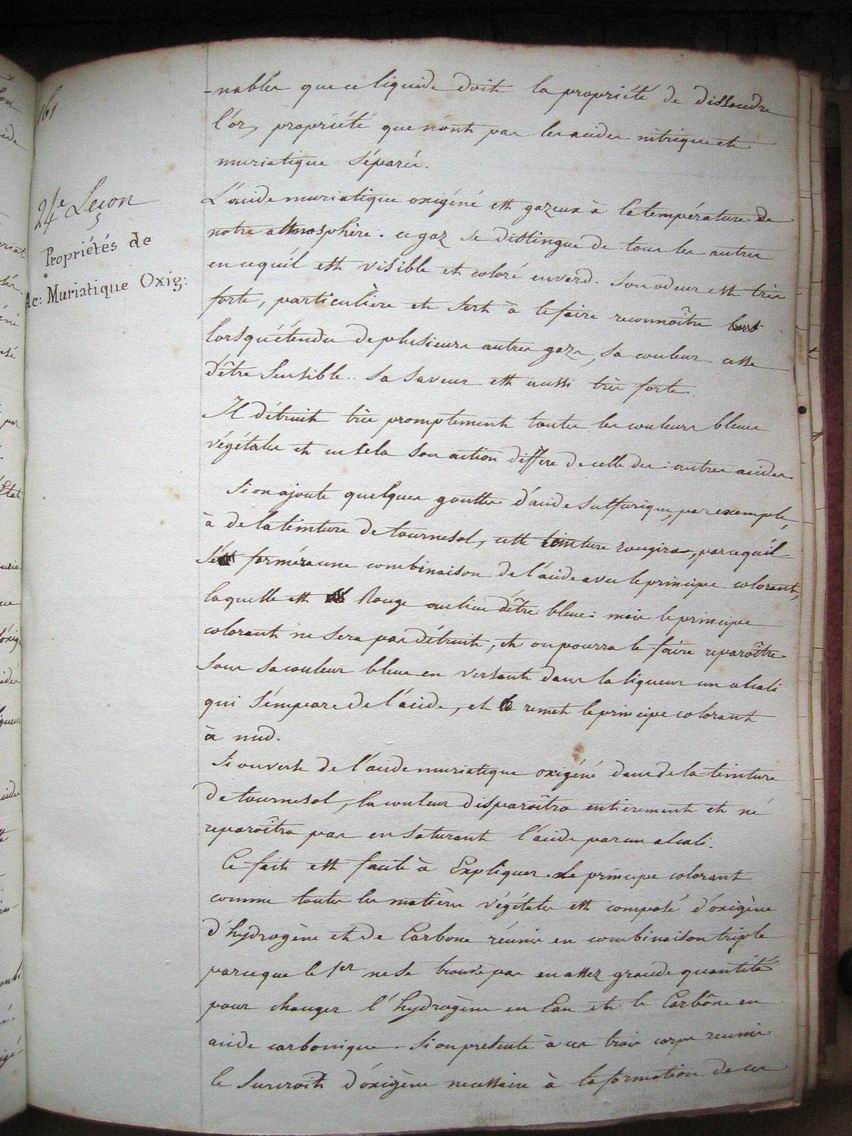 161
24e Leçon
Propriétés de
Ac: Muriatique Oxig:
-nables que ce liquide doit la propriété de dissoudre
l'or, propriété que n'ont pas les acides nitrique et
muriatique séparés.
L'acide muriatique oxigéné est gazeux à la température de
notre atmosphère. ce gaz se distingue de tous les autres
en ce qu'il est visible et coloré en verd. Son odeur est très
forte, particulière et sert à le faire reconnoître
lorsqu'étendu de plusieurs autres gazs, sa couleur cesse
d'être sensible. sa saveur est aussi très forte.
Il détruit très promptement toutes les couleurs bleues
végétales et en cela son action diffère de celle des autres acides.
Si on ajoute quelques gouttes d'acide sulfurique, par exemple,
à de la teinture de tournesol, cette teinture rougira, parcequ'il
se formera une combinaison de l'acide avec le principe colorant,
laquelle est Rouge au lieu d'être bleue: mais le principe
colorant ne sera pas détruit, et on pourra le faire reparoître
sous sa couleur bleue en versant dans la liqueur un alcali
qui s'empare de l'acide, et remet le principe colorant
à nud.
Si on verse de l'acide muriatique oxigéné dans de la teinture
de tournesol, la couleur disparoîtra entierement et ne
reparoîtra pas en saturant l'acide par un alcali.
Ce fait est facile à Expliquer. Le principe colorant
comme toutes les matières végétales est composé d'oxigène
d'hydrogène et de Carbone réunis en combinaison triple
parceque le 1er ne se trouve pas en assez grande quantité
pour changer l'hydrogène en Eau et le Carbône en
acide carbonique. Si on présente à ces trois corps reunis
le surcroît d'oxigène necessaire à la formation de ces